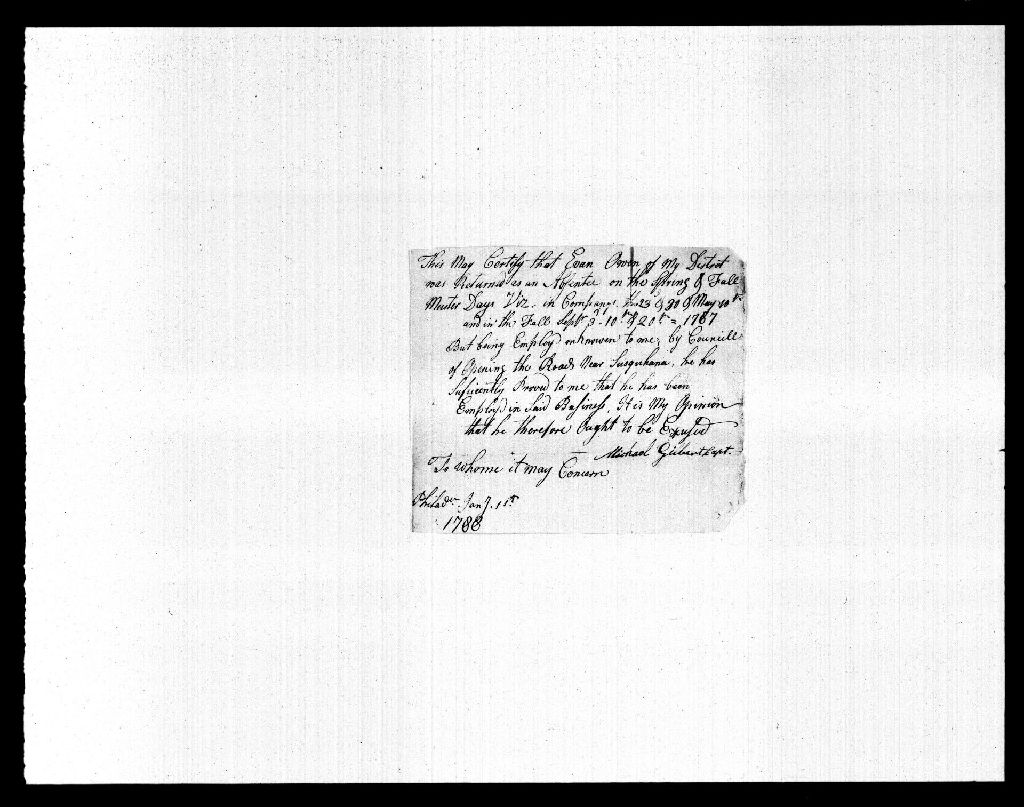 This May Certify that Evan Owen of My District
was Returned as an Absentee on the Spring & Fall
Muster Days Viz. in Company 23d & 30 & May 10th
and in the Fall Septr 3d - 10th & 20th = 1787
But being Employ'd unknowen to me, by Councill
of Opening the Roads Near Susquhana, he has
Suficently Proved to me that he has been
Employ'd in Said Business, It is My Opinion
that he therefore Ought to be Excused
Michael Gilbert Capt.
To whome it may Concern
Philada. Jany. 11th
1788